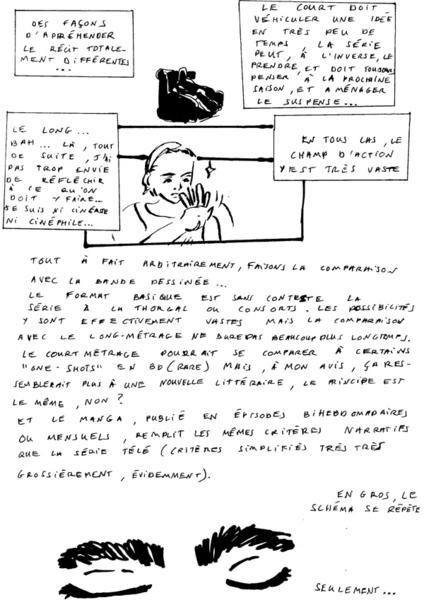 DES FAÇONS
D'APPRÉHENDER
LE RÉCIT TOTALE-
MENT DIFFÉRENTES
...
LE COURT DOIT
VÉHICULER UNE IDÉE
EN TRÈS PEU DE
TEMPS, LA SÉRIE
PEUT, À L'INVERSE, LE
PRENDRE, ET DOIT TOUJOURS
PENSER À LA PROCHAINE
SAISON, ET A MÉNAGER
LE SUSPENSE...
LE LONG...
BAH... LÀ, TOUT
DE SUITE, J'AI
PAS TROP ENVIE
DE RÉFLÉCHIR
À CE QU'ON
DOIT Y FAIRE...
JE SUIS NI CINÉASTE
NI CINÉPHILE...
EN TOUS CAS, LE
CHAMP D'ACTION
Y EST TRÈS VASTE
TOUT À FAIT ARBITRAIREMENT, FAISONS LA COMPARAISON
AVEC LA BANDE DESSINÉE...
LE FORMAT BASIQUE EST SANS CONTESTE LA
SÉRIE À LA THORGAL OU CONSORTS. LES POSSIBILITÉS
Y SONT EFFECTIVEMENT VASTES MAIS LA COMPARAISON
AVEC LE LONG-MÉTRAGE NE DURE PAS BEAUCOUP PLUS LONGTEMPS.
LE COURT MÉTRAGE POURRAIT SE COMPARER À CERTAINS
"ONE-SHOTS" EN BD (RARE) MAIS, À MON AVIS, ÇA RES-
SEMBLERAIT PLUS À UNE NOUVELLE LITTÉRAIRE, LE PRINCIPE EST
LE MÊME, NON?
ET LE MANGA, PUBLIÉ EN ÉPISODES BIHEBDOMADAIRES
OU MENSUELS, REMPLIT LES MÊMES CRITÈRES NARRATIFS
QUE LA SÉRIE TÉLÉ (CRITÈRES SIMPLIFIÉS TRÈS TRÈS
GROSSIÈREMENT, ÉVIDEMMENT).
EN GROS, LE
SCHÉMA SE RÉPÈTE
SEULEMENT...